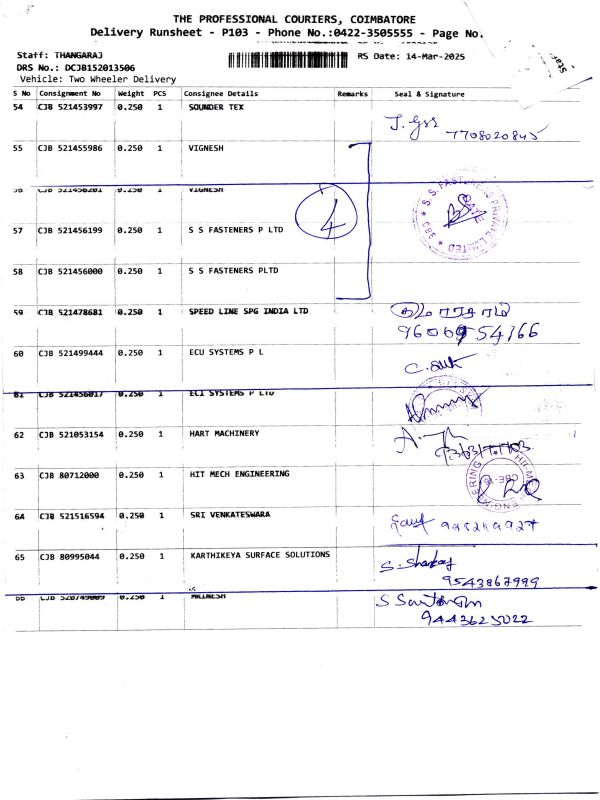 THE PROFESSIONAL COURIERS, COIMBATORE
Delivery Runsheet - P103 - Phone No.:0422-3505555 - Page No.
Staff: THANGARAJ RS Date: 14-Mar-2025
DRS No.: DCJB152013506
Vehicle: Two Wheeler Delivery
S No Consignment No Weight PCS Consignee Details Remarks Seal & Signature
54 CJB 521453997 0.250 1 SOUNDER TEX
7708020845
55 CJB 521455986 0.250 1 VIGNESH
56 CJB 521456201 0.250 1 VIGNESH
4
57 CJB 521456199 0.250 1 S S FASTENERS P LTD
58 CJB 521456000 0.250 1 S S FASTENERS PLTD
59 CJB 521478681 0.250 1 SPEED LINE SPG INDIA LTD
60 CJB 521499444 0.250 1 ECU SYSTEMS P L
61 CJB 521456017 0.250 1 ECI SYSTEMS P LTD
62 CJB 521053154 0.250 1 HART MACHINERY
63 CJB 80712000 0.250 1 HIT MECH ENGINEERING
64 CJB 521516594 0.250 1 SRI VENKATESWARA
65 CJB 80995044 0.250 1 KARTHIKEYA SURFACE SOLUTIONS
9543867999
66 CJB 520749009 0.250 1
9443625022